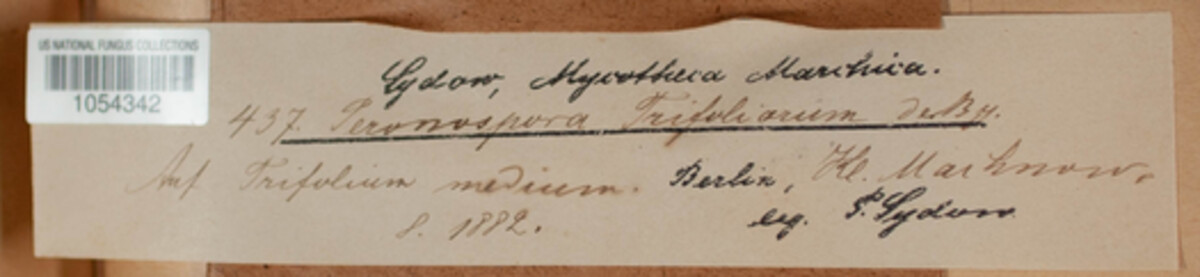 US NATIONAL FUNGUS COLLECTIONS
1054342
Sydow, Mycotheca Marchica.
437. Peronospora Trifoliorum de By.
Auf Trifolium medium. Berlin, Kl. Machnow.
8. 1882. leg. P. Sydow